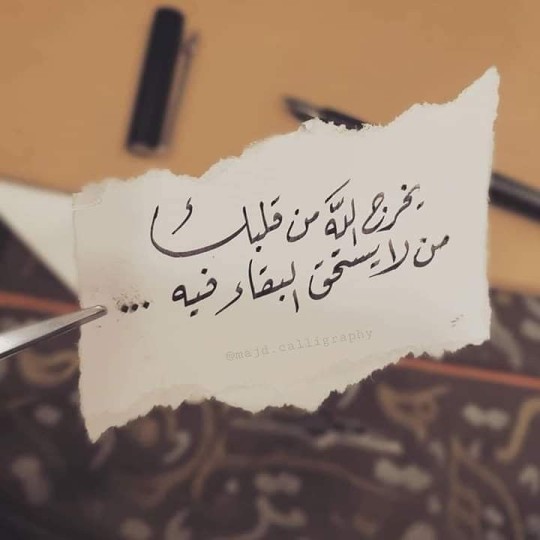 يخرج الله من قلبك
من لا يستحق البقاء فيه ...
@majd.calligraphy